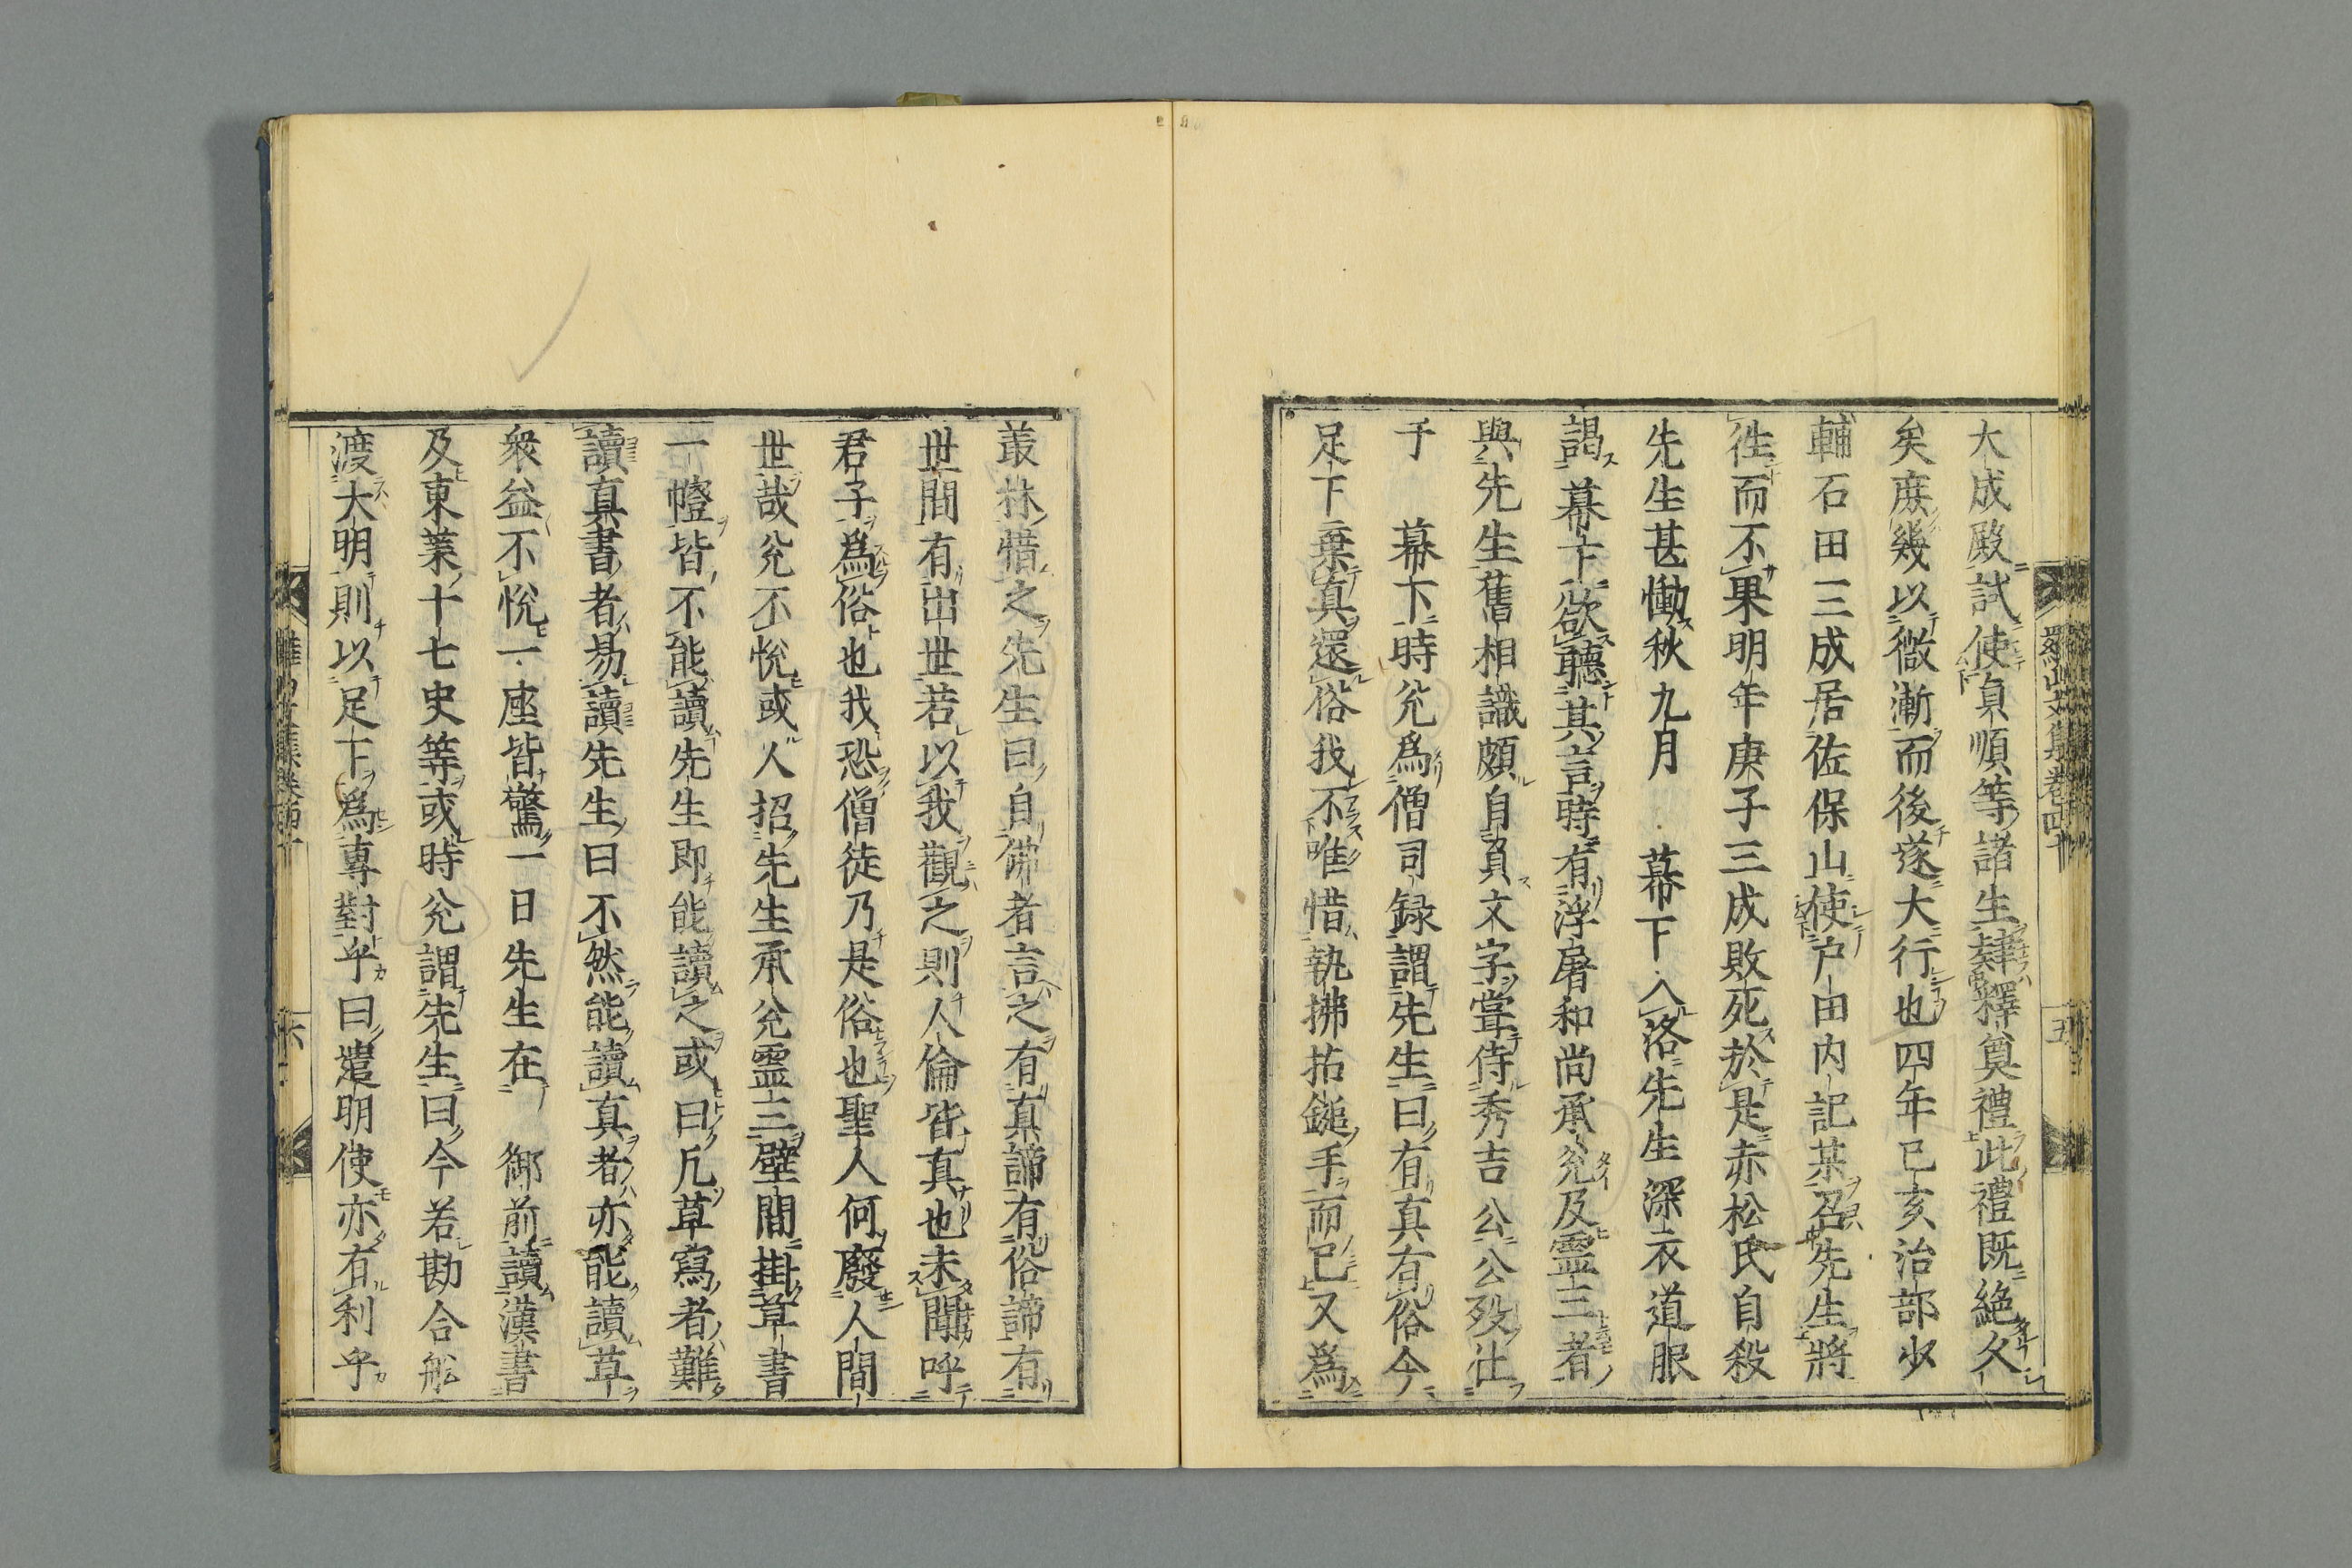 大成殿試使貞順等諸生肄釋奠禮此禮既絶久
矣庶幾以微漸而後遂大行也四年己亥治部少
輔石田三成居佐保山使戸田内記某召先生將
徃而不果明年庚子三成敗死於是赤松氏自殺
先生甚慟秋九月　幕下入洛先生深衣道服
謁　幕下欲聽其言時有浮屠和尚承兊及靈三者
與先生舊相識頗自負文字嘗侍秀吉公公歿仕
于　幕下時兊爲僧司録謂先生曰有真有俗今
足下棄真還俗我不唯惜執拂拈鎚手而已又爲
羅山文集卷四十
五
叢林惜之先生曰自佛者言之有真諦有俗諦有
世間有出世若以我觀之則人倫皆真也未聞呼
君子爲俗也我恐僧徒乃是俗也聖人何廢人間
世哉兊不悅或人招先生承兊靈三壁間掛草書
一幢皆不能讀先生即能讀之或曰凡草寫者難
讀真書者易讀先生曰不然能讀真者亦能讀草
衆益不悅一座皆驚一日先生在　御前讀漢書
及東萊十七史等或時兊謂先生曰今若勘合舩
渡大明則以足下爲專對乎曰遣明使亦有利乎
六